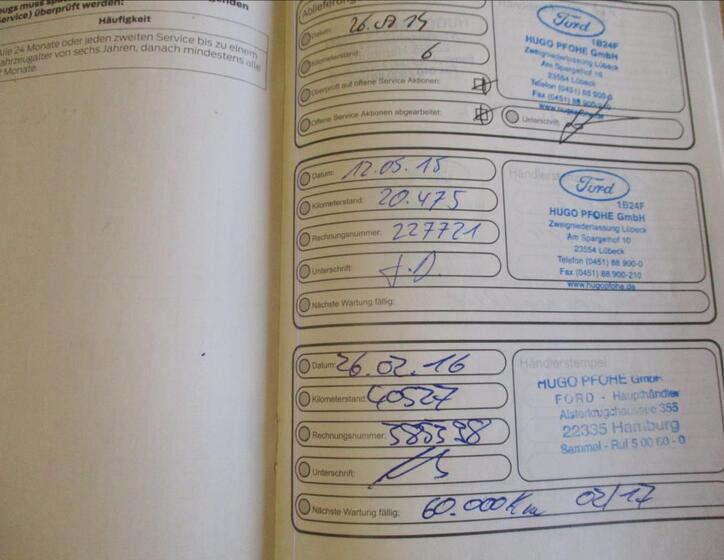 service) überprüft werden:
Häufigkeit
Alle 24 Monate oder jeden zweiten Service bis zu einem
ahrzeugalter von sechs Jahren, danach mindestens alle
Monate.
Ablieferung
Datum: 26.07.14
Kilometerstand: 6
Überprüft auf offene Service Aktionen:
Offene Service Aktionen abgearbeitet:
Unterschrift:
Ford
1B24F
HUGO PFOHE GmbH
Zweigniederlassung Lübeck
Am Spargelhof 10
23554 Lübeck
Telefon (0451) 88 900-0
Fax (0451) 88 900-210
www.hugopfohe.de
Datum: 12.05.15
Kilometerstand: 20.475
Rechnungsnummer: 227721
Unterschrift:
Nächste Wartung fällig:
Ford
1B24F
HUGO PFOHE GmbH
Zweigniederlassung Lübeck
Am Spargelhof 10
23554 Lübeck
Telefon (0451) 88 900-0
Fax (0451) 88 900-210
www.hugopfohe.de
Datum: 26.02.16
Kilometerstand: 40527
Rechnungsnummer: 385398
Unterschrift:
Nächste Wartung fällig: 60.000 Km 02/17
Händlerstempel
HUGO PFOHE GmbH
FORD - Haupthändler
Alsterkrugchaussee 355
22335 Hamburg
Sammel - Ruf 5 00 60 - 0